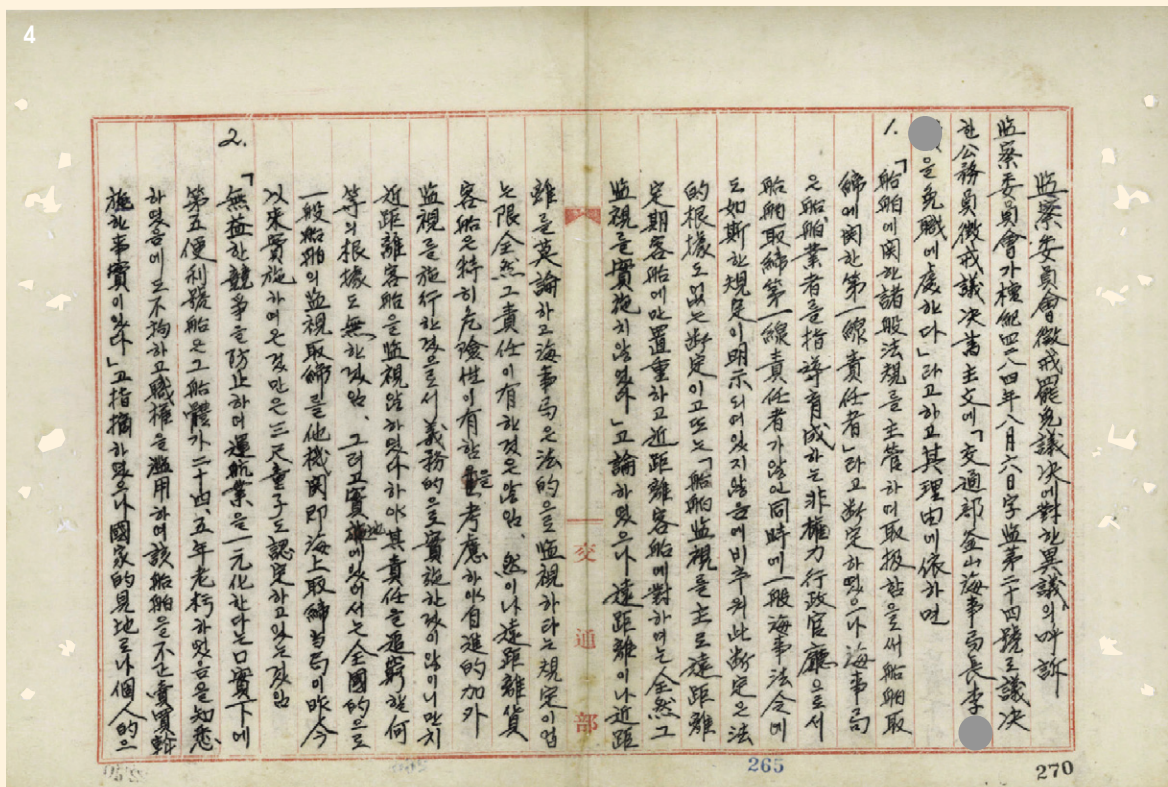 4
監察委員會徵戒罷免議決에對한異議의呼訴
監察委員會가檀紀四二八四年八月六日字監第二十四號로議決
한公務員徵戒議決書主文에「交通部釜山海事局長李
을免職에處한다」라고하고其理由에依하면
1. 「船舶에関한諸般法規를主管하며取扱함을써船舶取
締에関한第一線責任者」라고断定하였으나海事局
은船舶業者를指導育成하는非權力行政官廳으로서
船舶取締第一線責任者가않인同時에一般海事法令에
도如斯한規定이明示되여있지않음에비추워此断定은法
的根據도없는断定이고또는「船舶監視를主로遠距離
定期客船에만置重하고近距離客船에對하여는全然그
監視를實施치않었다」고論하였으나遠距離이나近距
離를莫論하고海事局은法的으로監視하라는規定이업
는限全然그責任이有한것은않임、然이나遠距離貨
客船은特히危險性이有함을考慮하야自進的加外
監視를施行한것으로서義務的으로實施한것이않이니만치
近距離客船을監視않하였다하야其責任을追窮할何
等의根據도無한것임、그러고實地에있어서는全國的으로
一般船舶의監視取締를他機関即海上取締當局이昨今
以来實施하여온것만은三尺童子도認定하고있는것임
2. 「無益한競争을防止하며運航業을一元化한다는口實下에
第五便利號船은그船體가二十四、五年老朽하였음을知悉
하였음에도不拘하고職權을濫用하여該船舶을不正賣買斡
旋한事實이있다」고指摘하였으나國家的見地로나個人的으
交通部
265
270